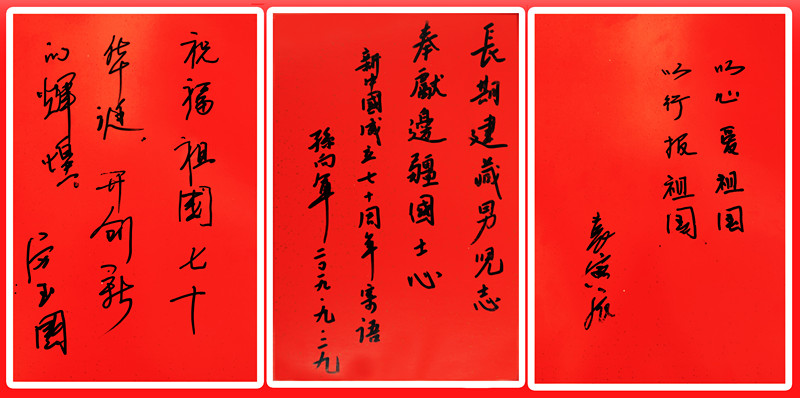 祝福祖國七十
华诞，开创新
的輝煌。
玉國
長期建藏男児志
奉獻邊疆國士心
新中國成立七十周年寄语
孫向軍 二〇一九·九·二九
以心爱祖国
以行报祖国